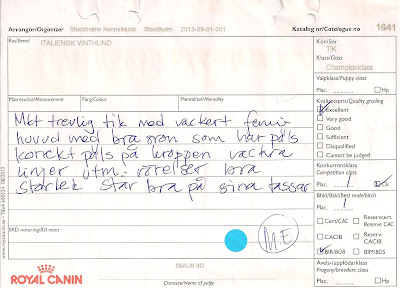 Arrangör/Organizer Stockholms Kennelklubb Stockholm 2013-09-01-001 Katalog nr/Catalogue no 1641
Ras/Breed ITALIENSK VINTHUND
Kön/Sex
TIK
Klass/Class
Championklass
Valpklass/Puppy class
Plac. Hp
Måttresultat/Measurement Färg/Colour Mentalitet/Mentality
Kvalitetspris/Quality grading
Excellent
Very good
Good
Sufficient
Disqualified
Cannot be judged
Mkt trevlig tik med vackert femin
huvud med bra öron som har päls
korrekt päls på kroppen vackra
linjer utm. rörelser bra
storlek står bra på sina tassar
Konkurrensklass
Competition class
Plac. 1 CK
Bhkl/Btkl/Best male/bitch
Plac. 1
Cers/CAC Reservcert
Reserve CAC
CACIB Reserv-
CACIB
BIR/BOB BIM/BOS
Avels-/uppfödarklass
Progeny/breeders class
Plac. Hp
SRD notering/BSI notes
M.E
ROYAL CANIN
Domare/Name of judge